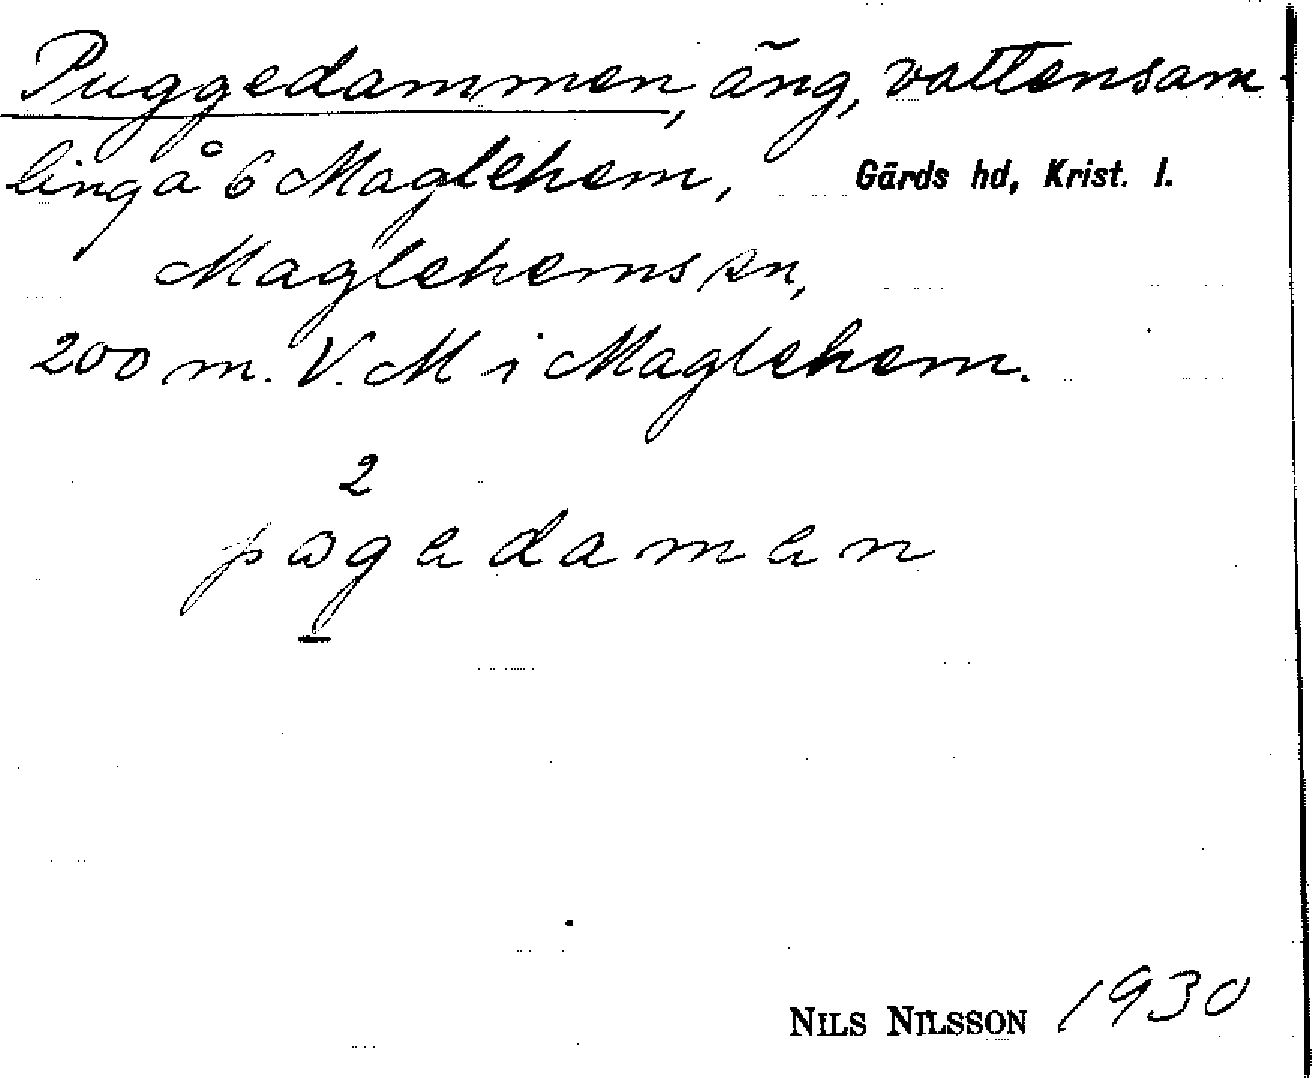 Puggedammen, äng, vattensam-
ling å 6 Maglehem, Gärds hd, Krist. l.
Maglehems sn,
200 m. V. M i Maglehem.
2
pøgadaman
NILS NILSSON 1930